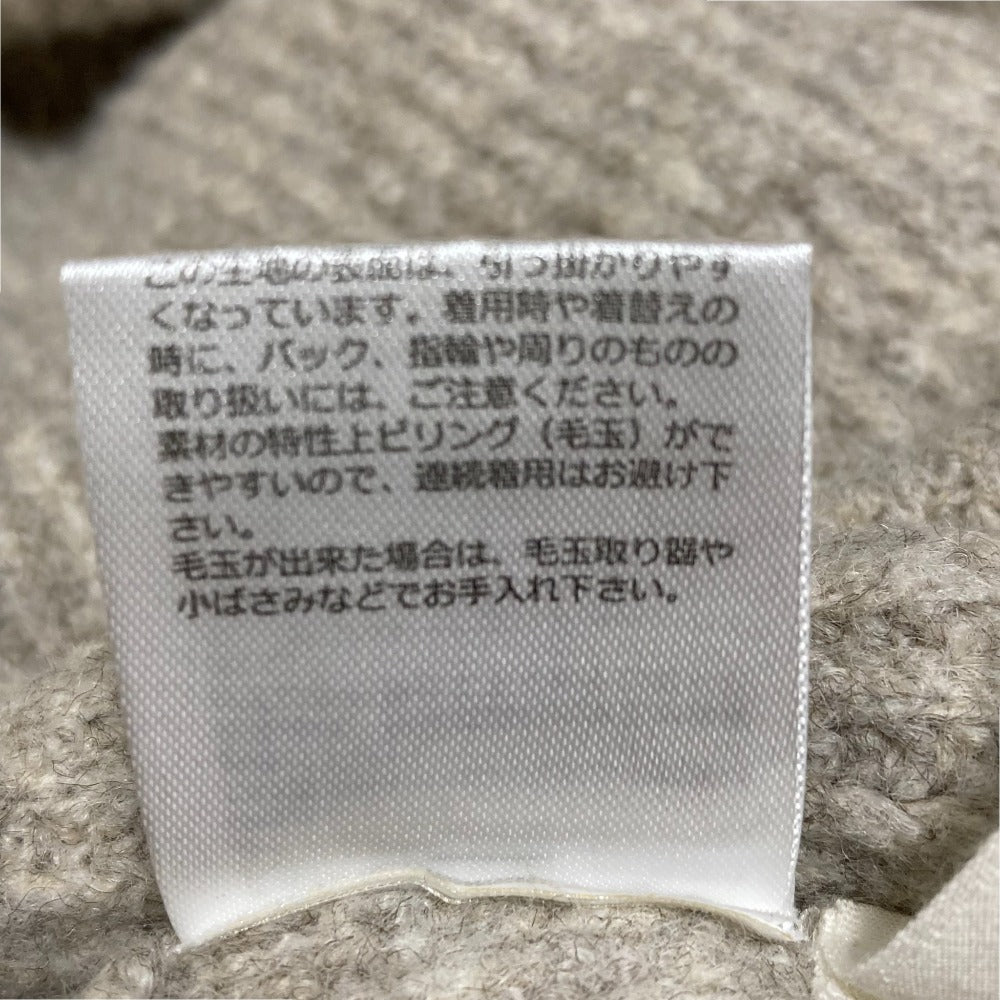 この生地の衣服は、引っ掛かりやす
くなっています。着用時や着替えの
時に、バック、指輪や周りのものの
取り扱いには、ご注意ください。
素材の特性上ピリング（毛玉）がで
きやすいので、連続着用はお避け下
さい。
毛玉が出来た場合は、毛玉取り器や
小ばさみなどでお手入れ下さい。